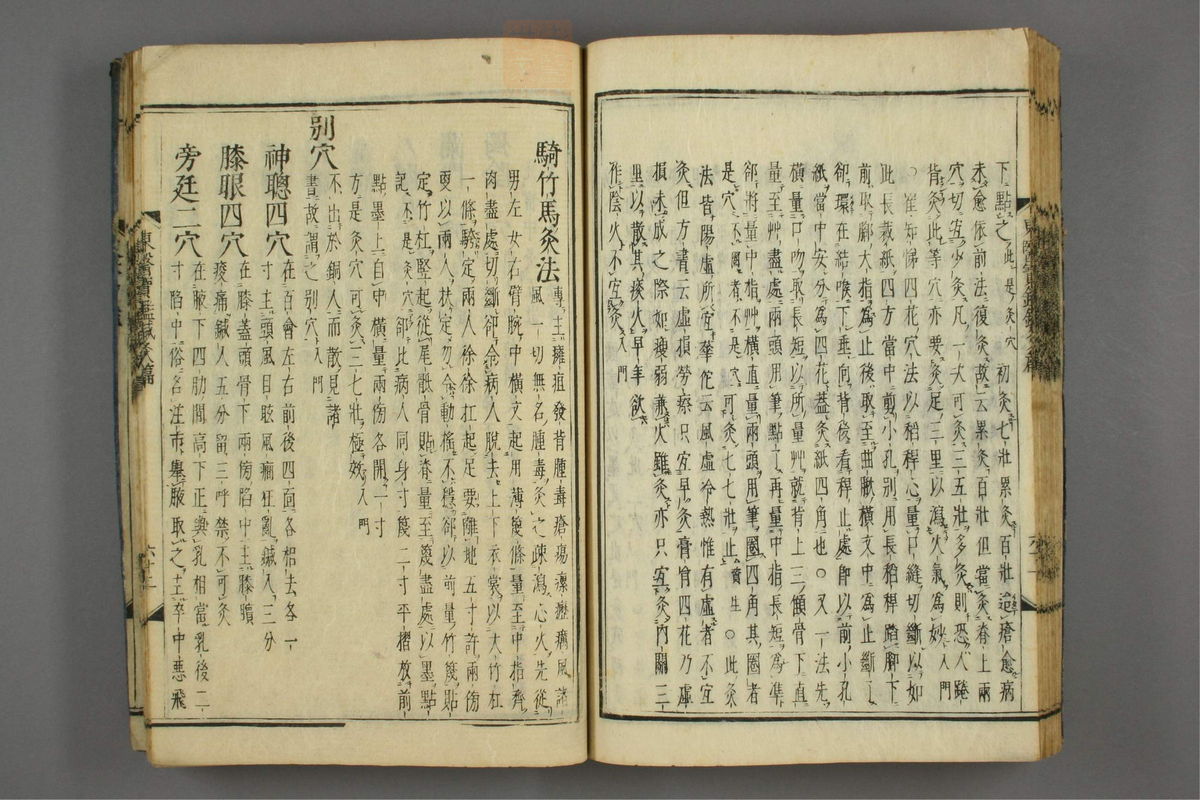 下點之此是灸穴初灸七壯累灸百壯迨瘡愈病
未愈依前法復灸故云累灸百壯但當灸脊上兩
穴切宜少灸凡一次可灸三五壯多灸則恐人踡
背灸此等穴亦要灸足三里以瀉火氣爲妙入門
○崔知悌四花穴法以稻稈心量口縫切斷以如
此長裁紙四方當中剪小孔別用長稻稈踏脚下
前取脚大指爲止後取至曲䐐橫文中爲止斷了
却環在結喉下垂向背後看稈止處即以前小孔
紙當中安分爲四花蓋灸紙四角也○又一法先
橫量口吻取長短以所量艸就背上三顀骨下直
量至艸盡處兩頭用筆點了再量中指長短爲準
却將量中指艸橫直量兩頭用筆圈四角其圈者
是穴不圈者不是穴可灸七七壯止資生○此灸
法皆陽虛所宜華佗云風虛冷熱惟有虛者不宜
灸但方書云虛損勞瘵只宜早灸膏肓四花乃虛
損未成之際如瘦弱兼火雖灸亦只宜灸內關三
里以散其痰火早年欲
作陰火不宜灸入門
騎竹馬灸法專主癰疽發背腫毒瘡瘍瘰癧癘風諸
風一切無名腫毒灸之疎瀉心火先從
男左女右臂腕中橫文起用薄篾條量至中指齊
肉盡處切斷却令病人脫去上下衣裳以大竹杠
一條騎定兩人徐徐扛起足要離地五寸許兩傍
更以兩人扶定勿令動搖不穩却以前量竹篾貼
定竹杠竪起從尾骶骨貼脊量至篾盡處以墨點
記不是灸穴却比病人同身寸篾二寸平摺放前
點墨上自中橫量兩傍各開一寸
方是灸穴可灸三七壯極妙入門
別穴不出於銅人而散見諸
書故謂之別穴入門
神聰四穴在百會左右前後四面各相去各一
寸主頭風目眩風癎狂亂鍼入三分
膝眼四穴在膝蓋頭骨下兩傍陷中主膝臏
痠痛鍼入五分留三呼禁不可灸
旁廷二穴在腋下四肋間高下正與乳相當乳後二
寸陷中俗名注市擧腋取之主卒中惡飛